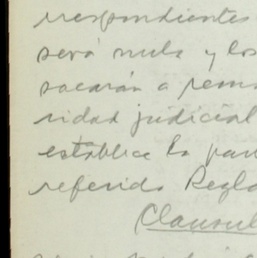 rrespondientes
será nula y los
sacarán a rema
ridad judicial
establece la par
referido Regla
Clausul